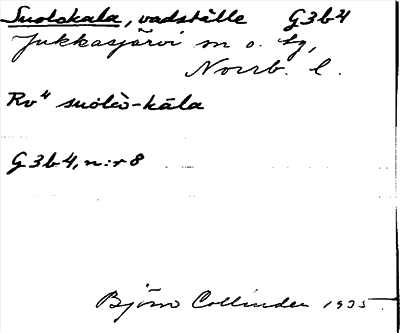 Suolokala, vadställe G3b4
Jukkasjärvi sn o. tg,
Norrb. l.
Rv⁴ suo̬lò-kāla
G3b4, n:r 8
Björn Collinder 1935